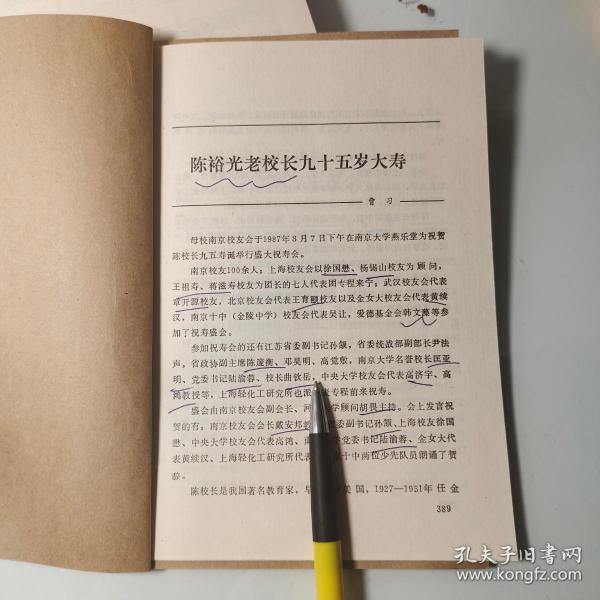 陈裕光老校长九十五岁大寿
曹习
母校南京校友会于1987年3月7日下午在南京大学燕乐堂为祝贺
陈校长九五寿诞举行盛大祝寿会。
南京校友100余人；上海校友会以徐国懋、杨锡山校友为顾问，
王祖寿、蒋滋寿校友为团长的七人代表团专程来宁；武汉校友会代表
章开源校友，北京校友会代表王育颐校友以及金女大校友会代表黄续
汉，南京十中（金陵中学）校友会代表吴让，爱德基金会韩文藻等参
加了祝寿盛会。
参加祝寿会的还有江苏省委副书记孙颔，省委统战部副部长尹法
声，省政协副主席陈邃衡、邓昊明、高觉敷，南京大学名誉校长匡亚
明、党委书记陆渝蓉、校长曲钦岳，中央大学校友会代表高济宇、高
鸿教授等，上海轻化工研究所也派 专程前来祝寿。
盛会由南京校友会副会长、河 学顾问胡畏主持。会上发言祝
贺的有：南京校友会会长戴安邦 委副书记孙颔、上海校友徐国
懋、中央大学校友会代表高鸿、 党委书记陆渝蓉、金女大代
表黄续汉、上海轻化工研究所代表 十中两位少先队员朗诵了贺
辞。
陈校长是我国著名教育家， 美国，1927—1951年任金
389
孔夫子旧书网
www.kongfz.com